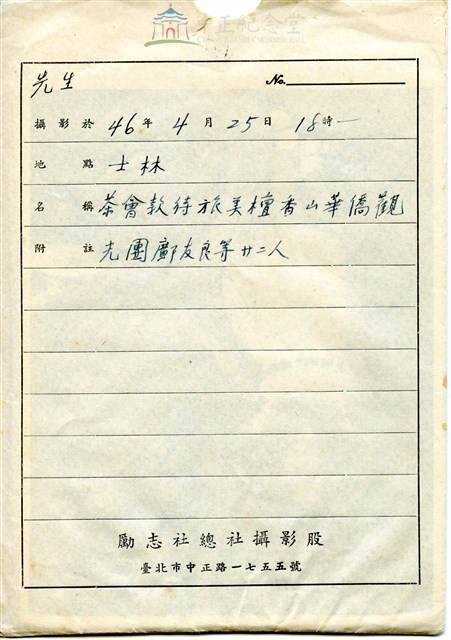 中正紀念堂
先生 No.
攝影於 46年 4月 25日 18時
地點 士林
名稱 茶會款待旅美檀香山華僑觀
附註 光團鄺友良等廿二人
勵志社總社攝影股
臺北市中正路一七五五號